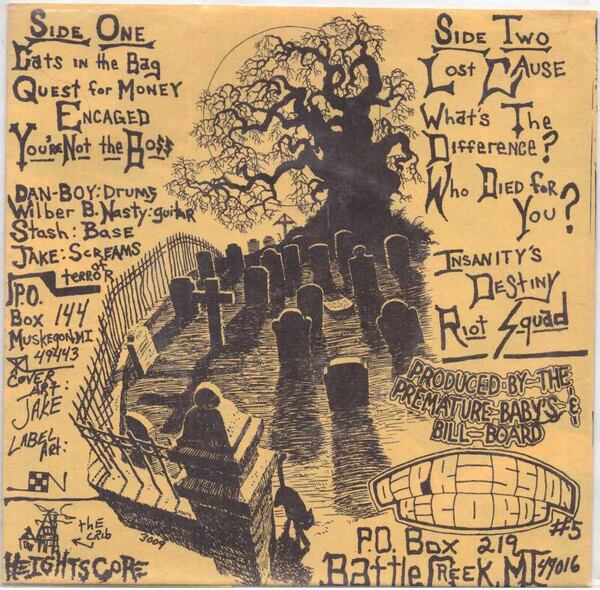 SIDE ONE
Cats in the Bag
Quest for Money
Encaged
You're Not the Bo$$
Dan-Boy: Drums
Wilber B. Nasty: guitar
Stash: Base
Jake: Screams
of terror
P.O.
Box 144
Muskegon, MI
49443
Cover
Art:
Jake
Label
Art:
the
crib
3009
HEIGHTSCORE
SIDE TWO
Lost Cause
What's The
Difference?
Who Died for
You?
Insanity's
Destiny
Riot Squad
PRODUCED·BY·THE
PREMATURE·BABY'S·&
BILL·BOARD
DEPRESSION
RECORDS
#5
P.O. Box 219
Battle Creek, MI 49016